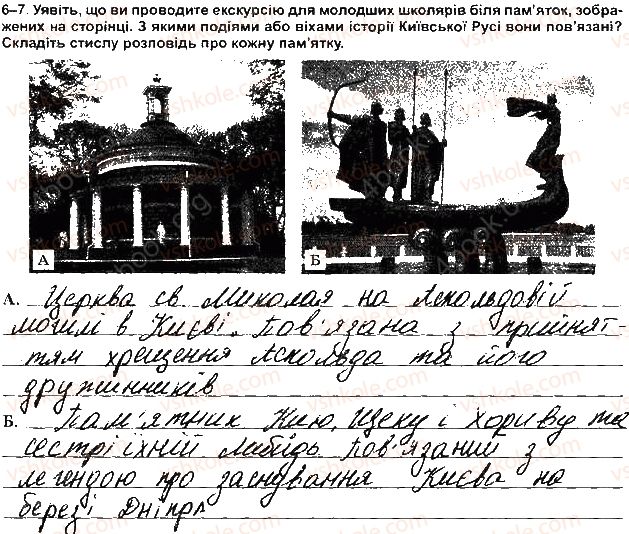 6–7. Уявіть, що ви проводите екскурсію для молодших школярів біля пам'яток, зобра-
жених на сторінці. З якими подіями або віхами історії Київської Русі вони пов'язані?
Складіть стислу розповідь про кожну пам'ятку.
А
Б
А. Церква св. Миколая на Аскольдовій
могилі в Києві. Пов'язана з прийнят-
тям хрещення Аскольда та його
дружинників
Б. Пам'ятник Кию, Щеку і Хориву та
сестрі їхній Либідь Пов'язаний з
легендою про заснування Києва на
березі Дніпра